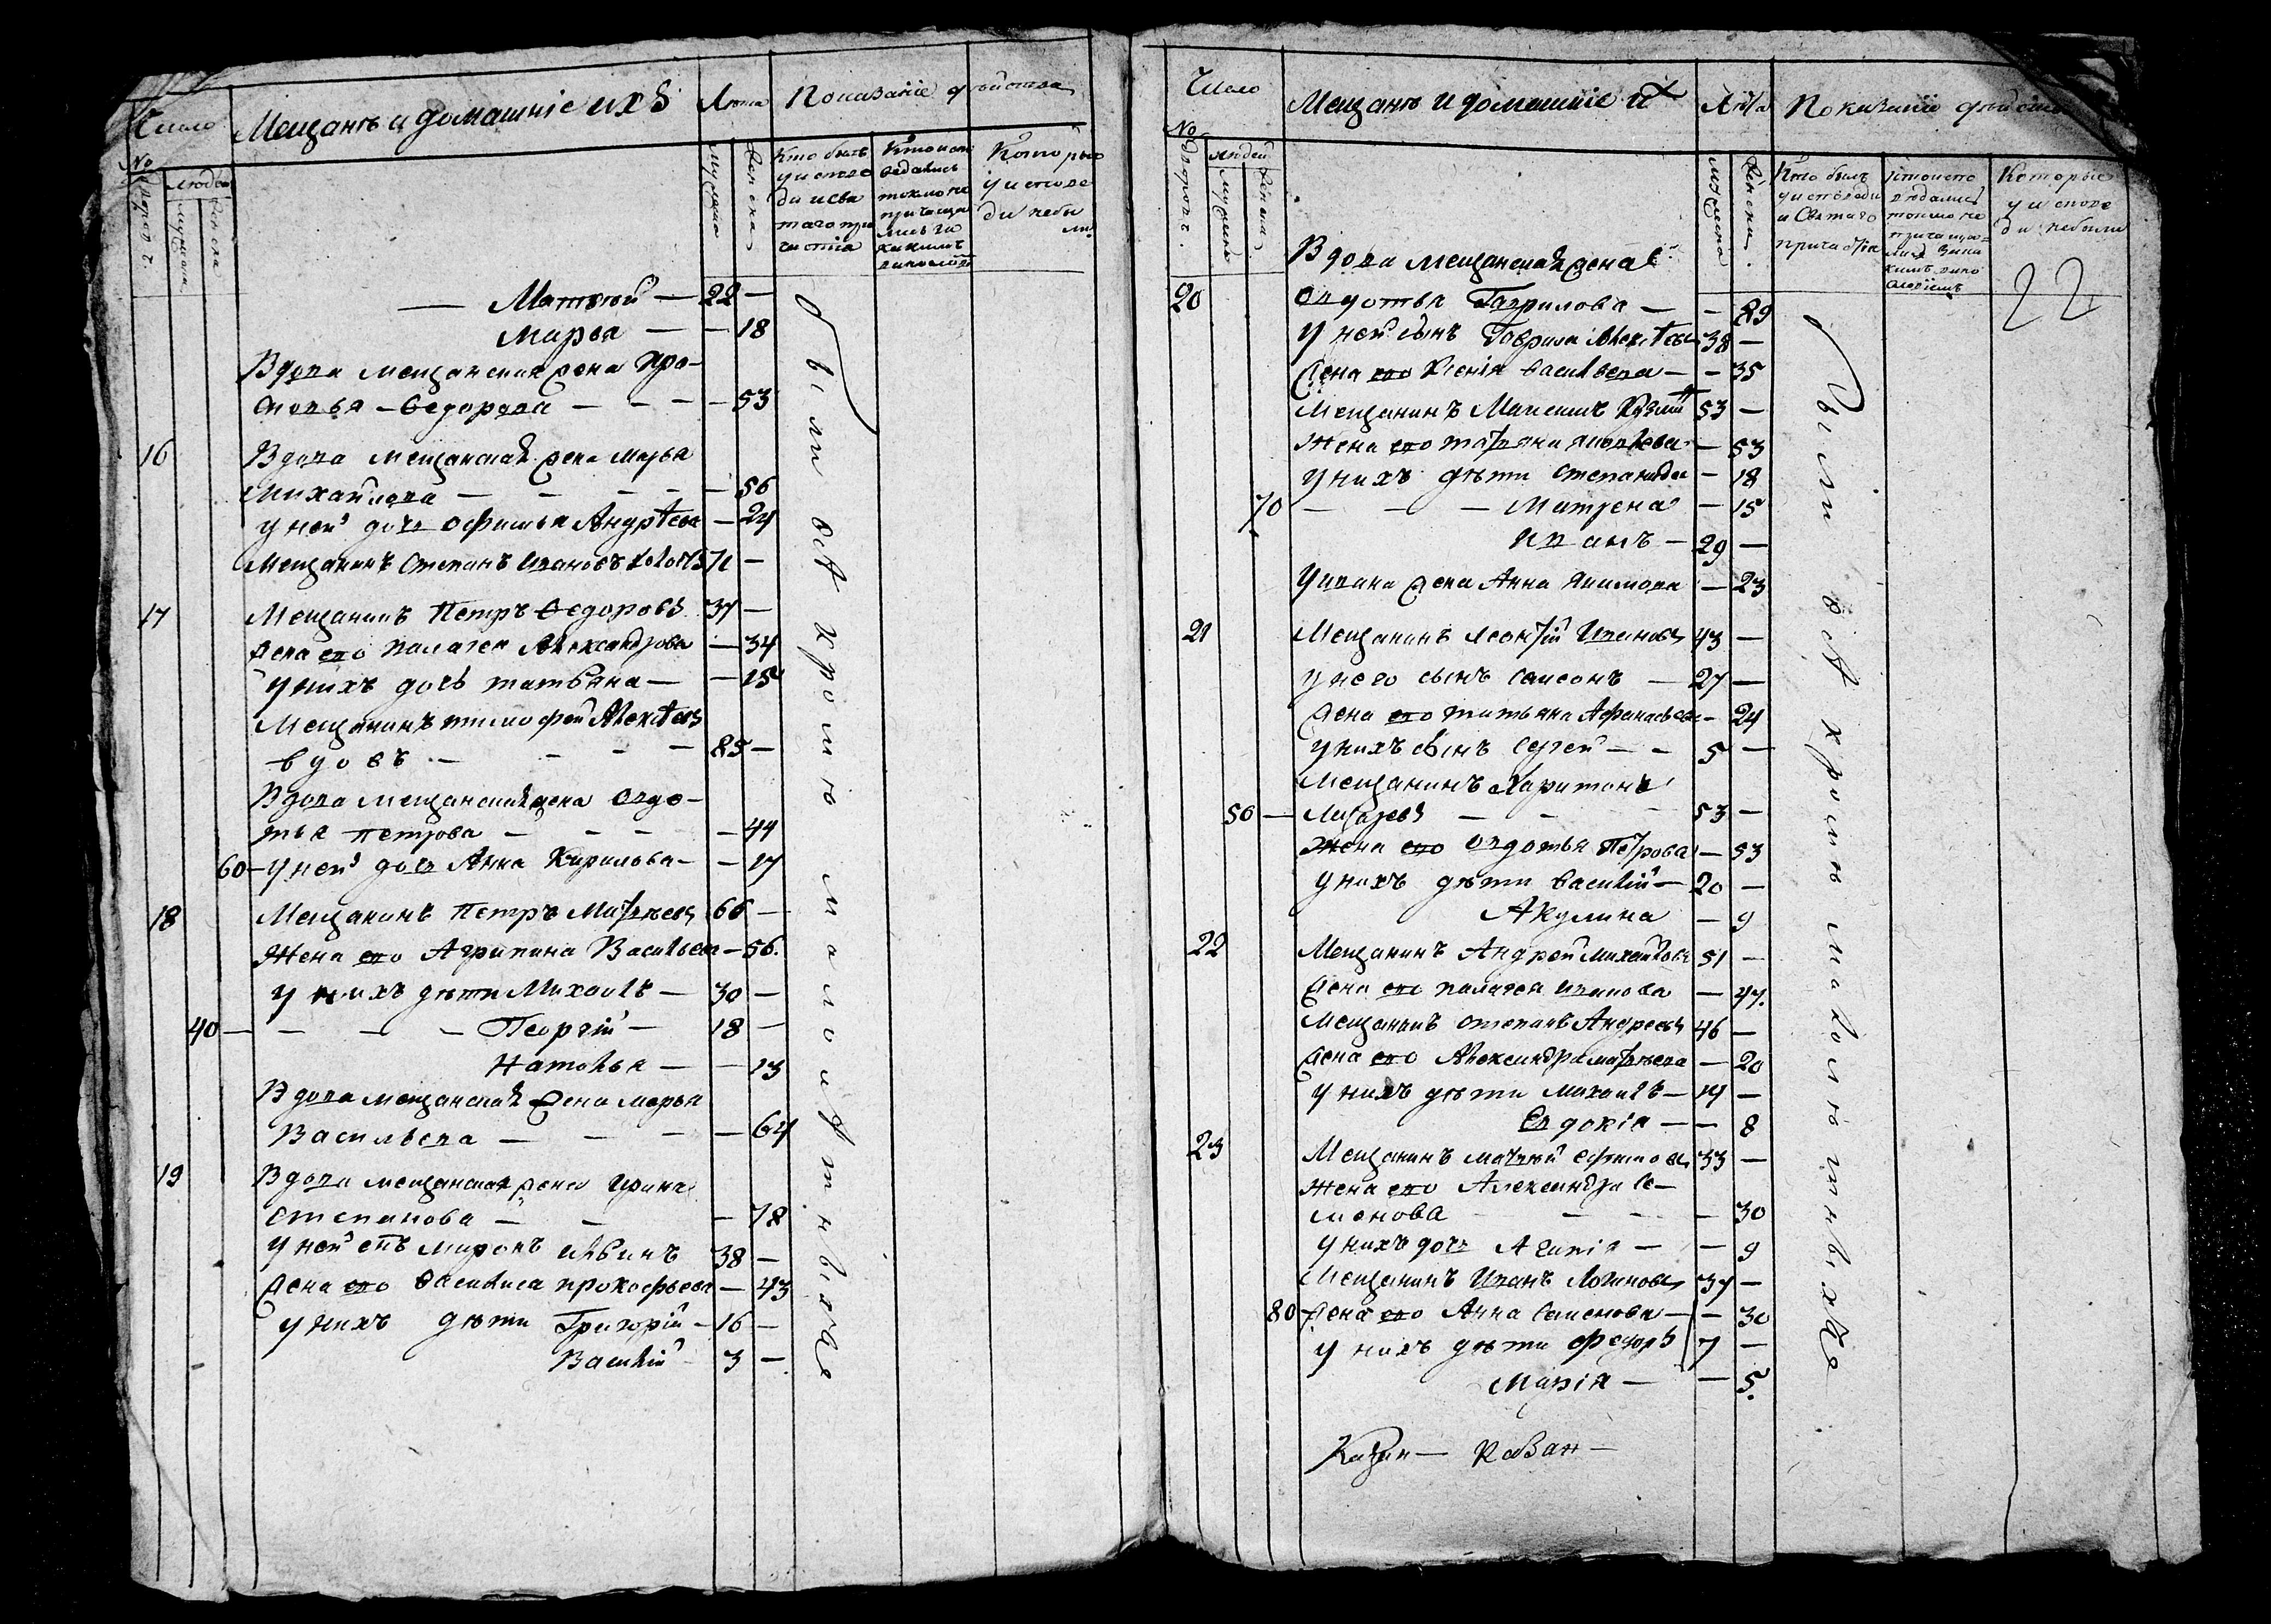 Число
Мещанъ и домашніе ихъ
Лѣта
Показаніе дѣйства
№
дворовъ
людей
мужеска
женска
мужеска
женска
Кто былъ
у испове
ди и свя
таго при
частія
Кто испо
ведались
токмо не
прича ща
лись
каким
Которые
у испове
ди небы
ли
— Матвѣй — 22 —
Марья — — 18
Вдова мещанская жена Пра-
сковья Ѳедорова — — — — 53
16 Вдова мещанская жена Марья
Михайлова — — — — 56
у ней дочь Офимья Андрѣева — 24
Мещанинъ Степанъ Ивановъ
17 Мещанинъ Петръ Ѳедоровъ 37 —
Жена его Палагея Александрова — 34
у нихъ дочь Татьяна — — 15
Мещанинъ Тимофей Алексѣевъ
вдовъ — — — 85 —
Вдова мещанская жена Овдо-
тья Петрова — — — — 44
60 — у ней дочь Анна Кирилова — — 17
18 Мещанинъ Петръ Матвѣевъ 66 —
Жена его Агрипина Васильева — 56
у нихъ дѣти Михаилъ — 30 —
40 — — — — Георгій — 18 —
Наталья — — 13
Вдова мещанская жена Марья
Васильева — — — — 64
19 Вдова мещанская жена Ирина
Степанова — — — 78
у ней сынъ Миронъ Ильинъ 38 —
Жена его Василиса Прокофьева — 43
у нихъ дѣти Григорій — 16 —
Василій 3 —
были всѣ кромѣ малолѣтныхъ
Число
Мещанъ и домашніе их
Лѣта
Показаніе дѣйства
№
дворовъ
людей
мужеска
женска
мужеска
женска
Кто былъ
у исповеди
и Святаго
причастія
кто испо
ведались
токмо не
прича ща-
лись
Которые
у испове
ди небыли
22
Вдова мещанская жена
20 Овдотья Гаврилова — — 89
у ней сынъ Гаврила Алексѣевъ 38 —
Жена его Ксенія Васильева — — 35
Мещанинъ Максимъ 53 —
Жена его Татьяна Яковлева — 53
у нихъ дѣти Степанида — 18
70 — — — Матрена — 15
Иванъ — 29 —
у Ивана жена Анна Якимова — 23
21 Мещанинъ Леонтій Ивановъ 43 —
у него сынъ Самсонъ — 27 —
Жена его Татьяна Афанасьева — 24
у нихъ сынъ Сергей — — 5 —
Мещанинъ Харитонъ
50 — Лазаревъ — — 53 —
Жена его Овдотья Петрова — 53
у нихъ дѣти Василій — 20 —
Акулина — 9
22 Мещанинъ Андрей Михайловъ 51 —
Жена его Палагея Иванова — 47
Мещанинъ Степанъ Андреевъ 46 —
Жена его Александра Матвѣева — 20
у нихъ дѣти Михаилъ — 14 —
Евдокія — — 8
23 Мещанинъ Матвѣй Ефимовъ 33 —
Жена его Александра Се-
менова — — — 30
у нихъ дочь Агапія — — 9
Мещанинъ Иванъ Логиновъ 37 —
80 Жена его Анна Самсонова — — 30
у нихъ дѣти Федоръ 7 —
Марія — — 5
Казан — Казан —
были всѣ кромѣ малолѣтныхъ